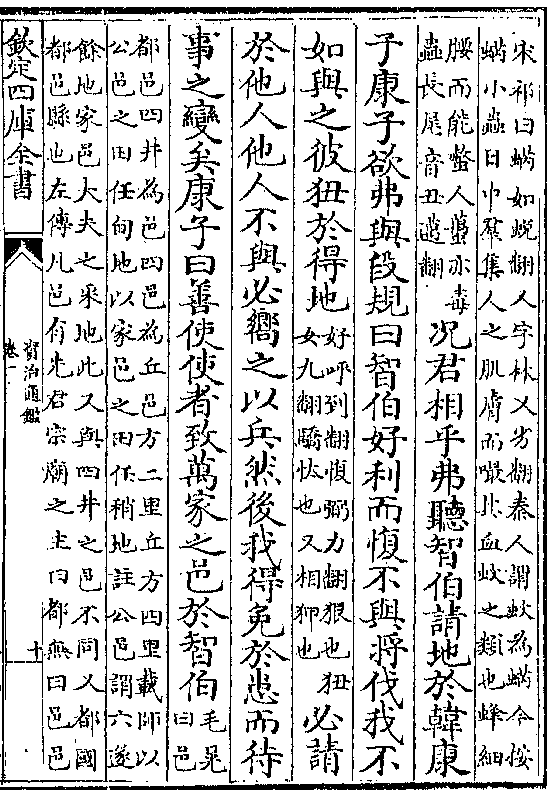 宋祁曰蜹如蛻翻人字林乂劣翻秦人謂蚊為蜹今按
蜹小蟲日中羣集人之肌膚而嘬其血蚊之類也蜂細
腰而能螫人蠆亦毒
蟲長尾音丑邁翻
况君相乎弗聽智伯請地於韓康
子康子欲弗與段規曰智伯好利而愎不與將伐我不
如與之彼狃於得地
好呼到翻愎弼力翻狠也狃
女九翻驕忕也又相狎也
必請
於他人他人不與必嚮之以兵然後我得免於患而待
事之變矣康子曰善使使者致萬家之邑於智伯
毛晃
曰邑
都邑四井為邑四邑為丘邑方二里丘方四里載師以
公邑之田任甸地以家邑之田任稍地註公邑謂六遂
餘地家邑大夫之采地此又與四井之邑不同又都國
都邑縣也左傳凡邑有先君宗廟之主曰都無曰邑邑
欽定四庫全書
資治通鑑
卷一
十